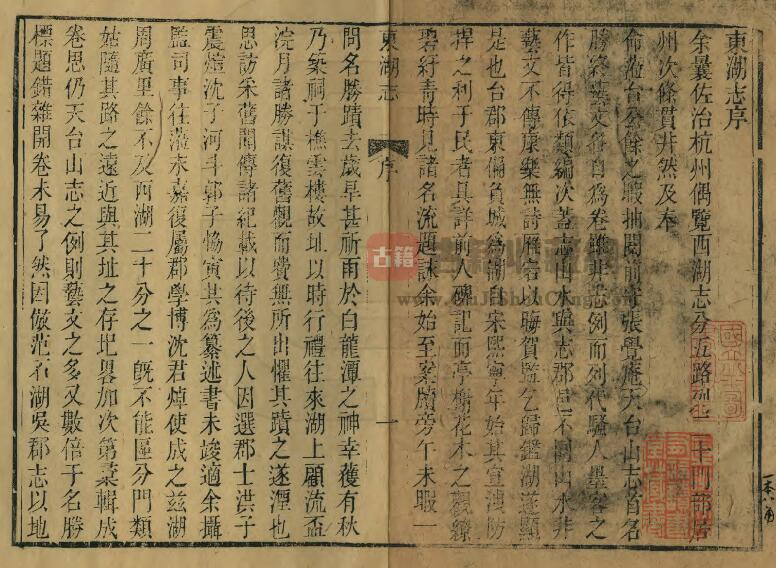 東湖志序
余曩佐治杭州偶覽西湖志分五路列三十門部居
州次條貫井然及奉
命涖台公餘之暇抽閱前守張覺庵天台山志首名
勝終藝文各自為卷雖非志例而列代騷人墨客之
作皆得依類編次蓋志山水與志郡邑不同山水非
藝文不傳康樂無詩雁宕以晦賀監乞歸鑑湖遂顯
是也台郡東偏負城為湖自宋熙寧年始其宣洩防
捍之利于民者具詳前人碑記而亭榭花木之觀繚
碧紆青時見諸名流題詠余始至案牘旁午未暇一
東湖志
序
一
問名勝蹟去歲旱甚祈雨於白龍潭之神幸獲有秋
乃築祠于樵雲樓故址以時行禮往來湖上顧流盃
浣月諸勝謀復舊觀而費無所出懼其蹟之遂湮也
思訪采舊聞傳諸紀載以待後之人因選郡士洪子
震煊沈子河斗郭子協寅其為纂述書未竣適余攝
監司事往涖永嘉復屬郡學博沈君焯使成之茲湖
周廣里餘不及西湖二十分之一旣不能區分門類
姑隨其路之遠近與其址之存圯畧加次第彚輯成
卷思仍天台山志之例則藝文之多又數倍于名勝
標題錯雜開卷未易了然因倣范石湖吳郡志以地
古籍